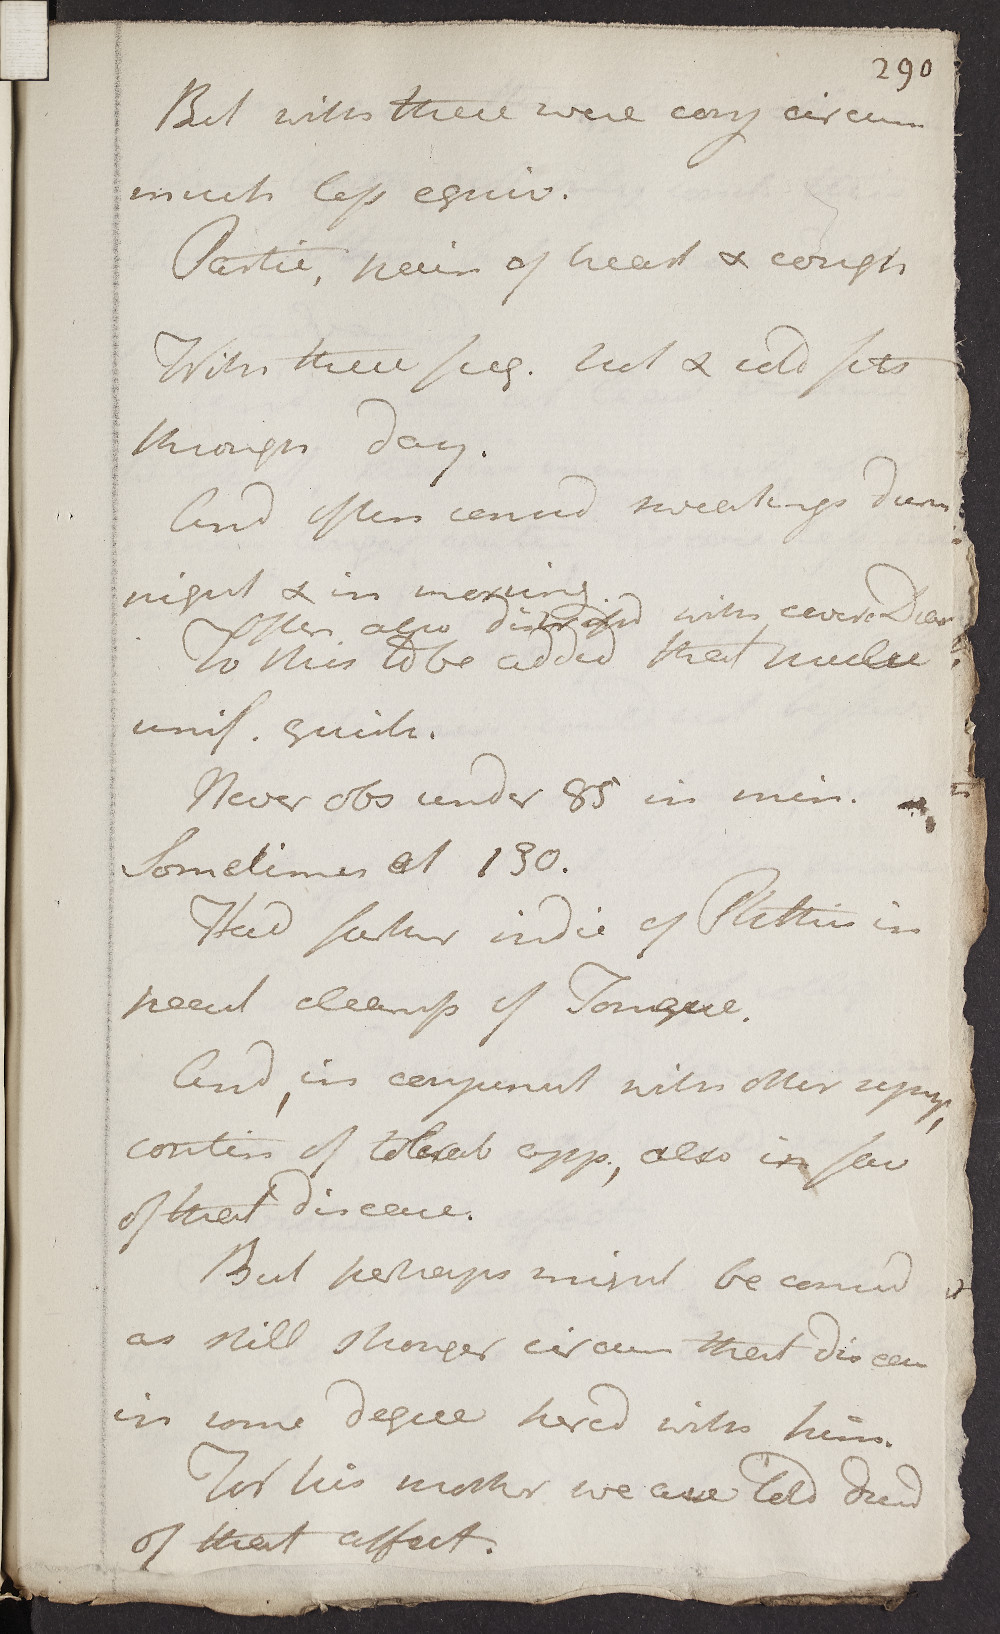 290
But with these were conj circum
much less equiv.
Partic, pain of heart & cough
With these freq. hot & cold fits
through day.
And often consid sweatings durin
night & in morning.
Often also distressd with severe Diar
To this to be added that pulse
unif. quick.
Never obs under 85 in min.
Sometimes at 130.
Had farther indic of Phthisis in
pecul cleanss of Tongue.
And, in conjunct with other symp,
contin of tolerab app., also in fav
of that disease.
But perhaps might be consid
as still stronger circum that diseas
in some degree hered with him.
For his mother we are told died
of that affect.